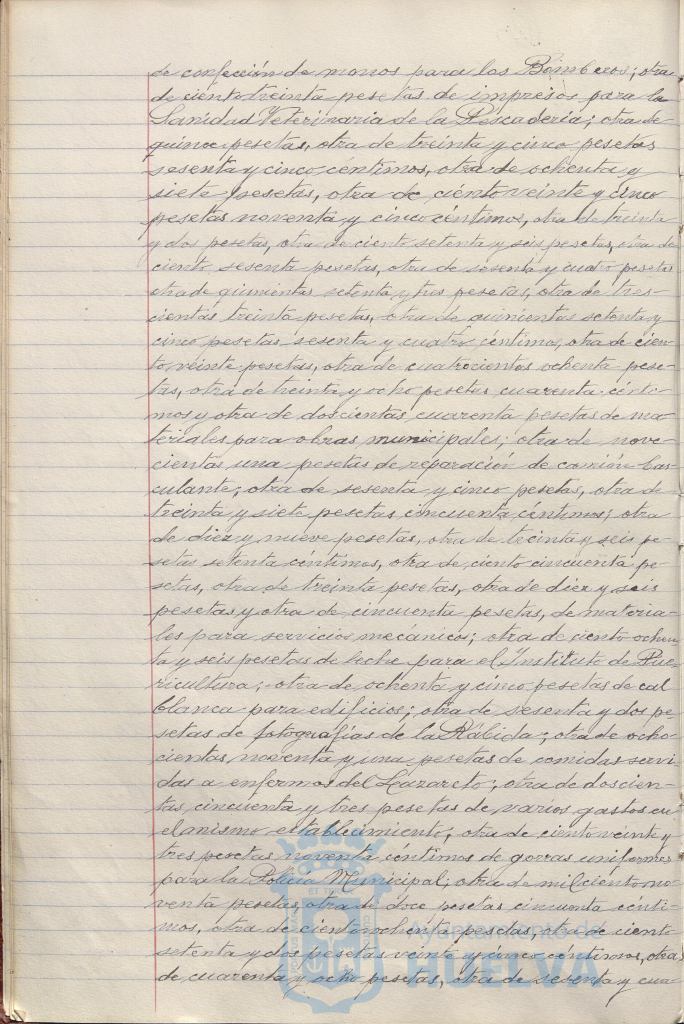 de confección de monos para los Bomberos; otra
de ciento treinta pesetas de impresos para la
Sanidad Veterinaria de la Pescaderia; otra de
quince pesetas, otra de treinta y cinco pesetas
sesenta y cinco céntimos, otra de ochenta y
siete pesetas, otra de ciento veinte y cinco
pesetas noventa y cinco céntimos, otra de treinta
y dos pesetas, otra de ciento setenta y seis pesetas, otra de
ciento sesenta pesetas, otra de sesenta y cuatro pesetas
otra de quinientas setenta y tres pesetas, otra de tres-
cientas treinta pesetas, otra de quinientas setenta y
cinco pesetas sesenta y cuatro céntimos, otra de cien-
to veinte pesetas, otra de cuatrocientos ochenta pese-
tas, otra de treinta y ocho pesetas cuarenta cénti-
mos y otra de doscientas cuarenta pesetas de ma-
teriales para obras municipales; otra de nove-
cientas una pesetas de reparación de camión bas-
culante; otra de sesenta y cinco pesetas, otra de
treinta y siete pesetas cincuenta céntimos; otra
de diez y nueve pesetas, otra de treinta y seis pe-
setas setenta céntimos, otra de ciento cincuenta pe-
setas, otra de treinta pesetas, otra de diez y seis
pesetas y otra de cincuenta pesetas, de materia-
les para servicios mecánicos; otra de ciento ochen-
ta y seis pesetas de leche para el Instituto de Pue-
ricultura; otra de ochenta y cinco pesetas de cal
blanca para edificios; otra de sesenta y dos pe-
setas de fotografías de la Rábida; otra de ocho-
cientas noventa y una pesetas de comidas servi
das a enfermos del Lazareto; otra de doscien-
tas cincuenta y tres pesetas de varios gastos en
el mismo establecimiento; otra de ciento veinte y
tres pesetas noventa céntimos de gorras uniformes
para la Policia Municipal; otra de mil ciento no-
venta pesetas, otra de doce pesetas cincuenta cénti-
mos, otra de ciento ochenta pesetas, otra de ciento
setenta y dos pesetas veinte y cinco céntimos, otra
de cuarenta y ocho pesetas, otra de setenta y cua-
Ayuntamiento de
HUELVA